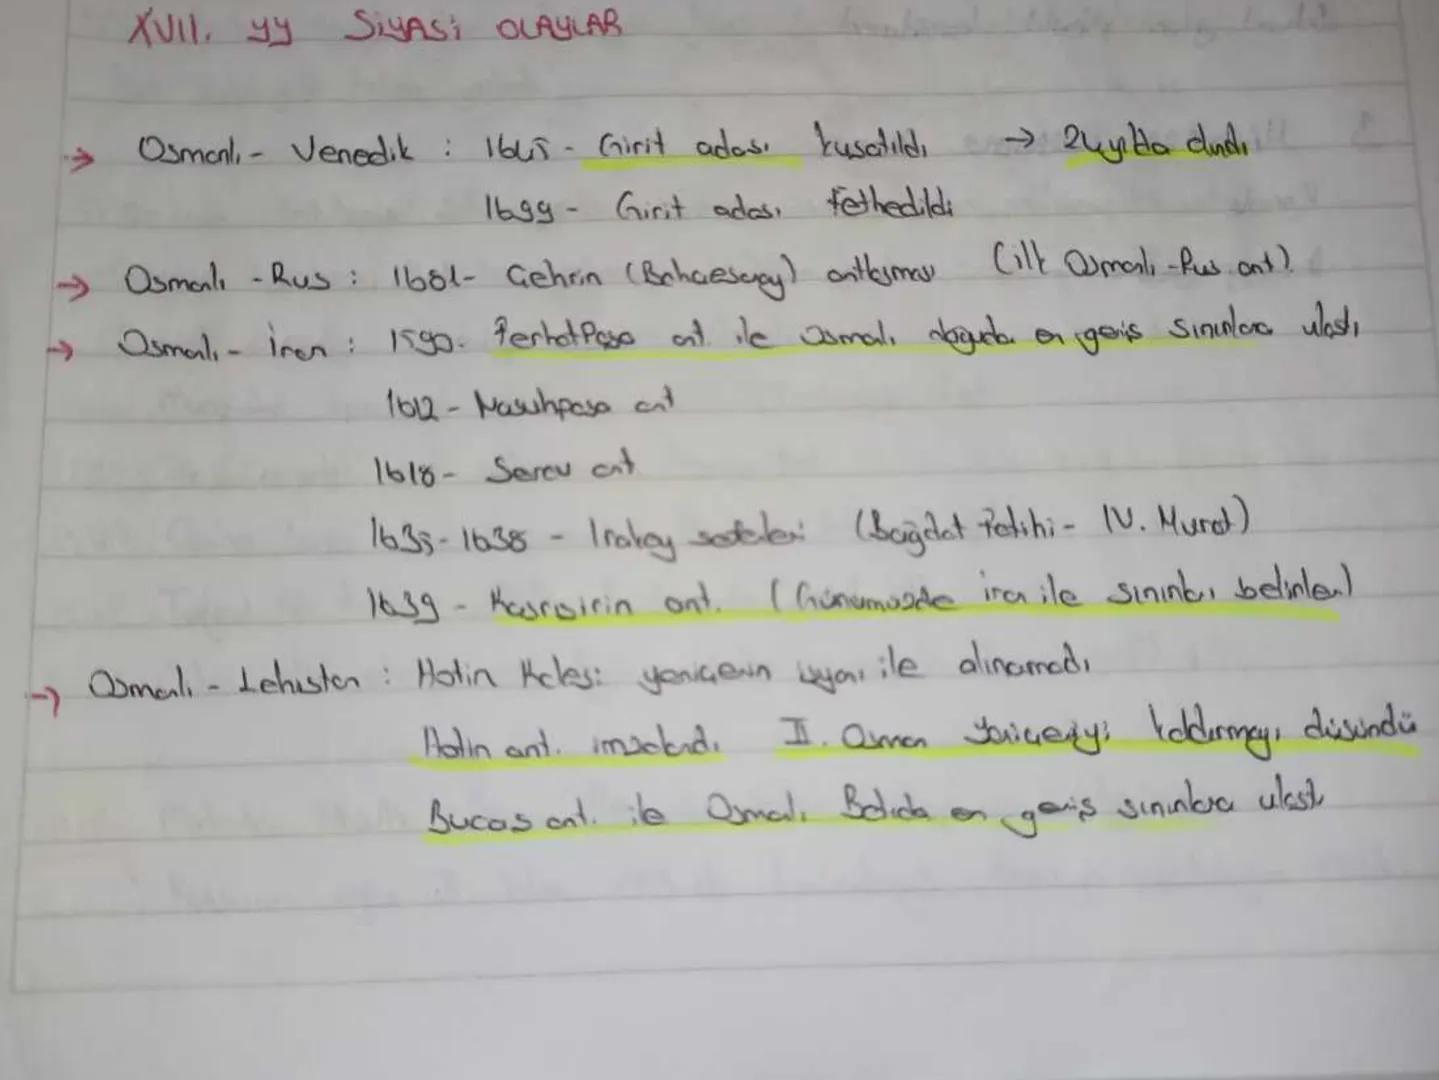 XVII. yy SİYASİ OLAYLAR
→ Osmanlı - Venedik : 1645 - Girit adası kuşatıldı → 24 yılda alındı
1699 - Girit adası fethedildi
→ Osmanlı - Rus : 1681- Çehrin (Bahçesaray) antlaşması (ilk Osmanlı - Rus ant)
→ Osmanlı - İran : 1590- Ferhatpaşa ant ile Osmanlı doğuda en geniş sınırlara ulaştı
1612 - Nasuhpaşa ant
1618 - Serav ant
1635-1638 - Irakay seferleri (Bağdat Fatihi - IV. Murat)
1639 - Kasrışirin ant. (Günümüzde iran ile sınırları belirlen)
→ Osmanlı - Lehistan : Hotin Kalesi yeniçerin isyanı ile alınamadı
Hotin ant. imzalandı. II. Osman Yeniçeriyi kaldırmayı düşündü
Bucaş ant. ile Osmanlı Batıda en geniş sınırlara ulaştı